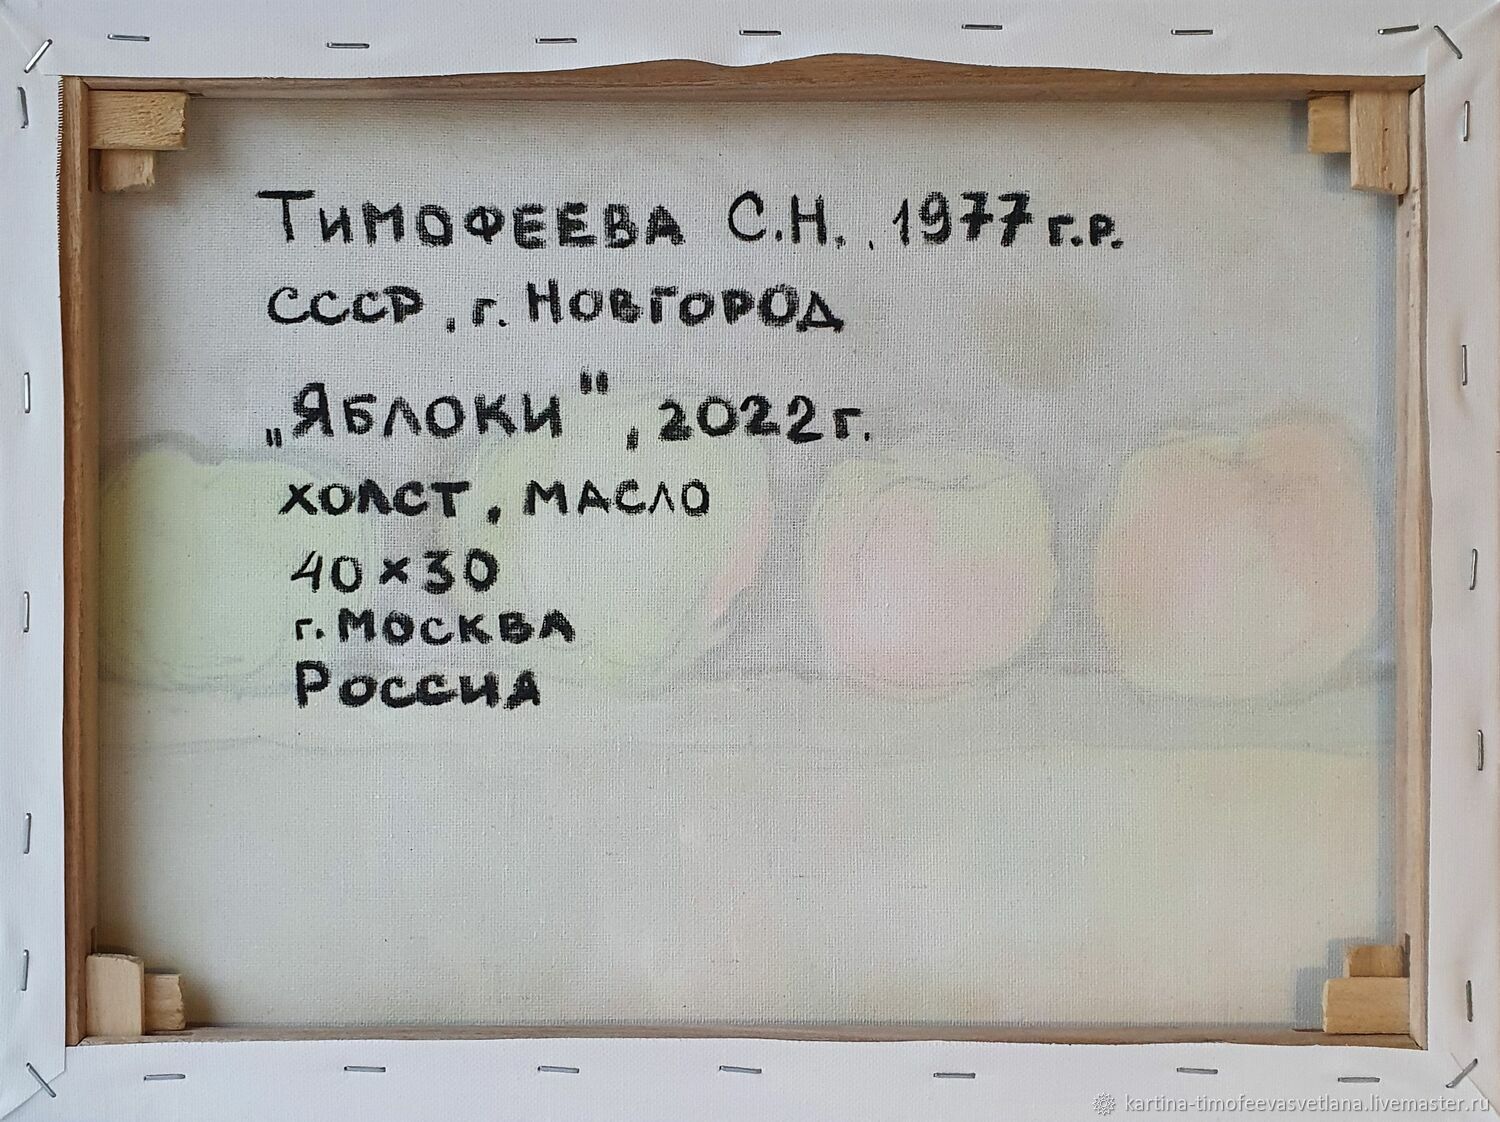 Тимофеева С.Н., 1977 г.р.
СССР, г. Новгород
„Яблоки", 2022 г.
холст, масло
40×30
г. Москва
Россиа
kartina-timofeevasvetlana.livemaster.ru